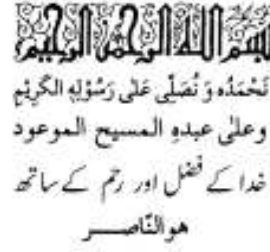 بسم الله الرحمن الرحيم
نَحْمَدُه وَ نُصَلِّى عَلٰى رَسُوْلِهِ الكَرِيْمِ
وعلىٰ عبدهِ المسيح الموعود
خدا کے فضل اور رحم کے ساتھ
هو النّاصــر